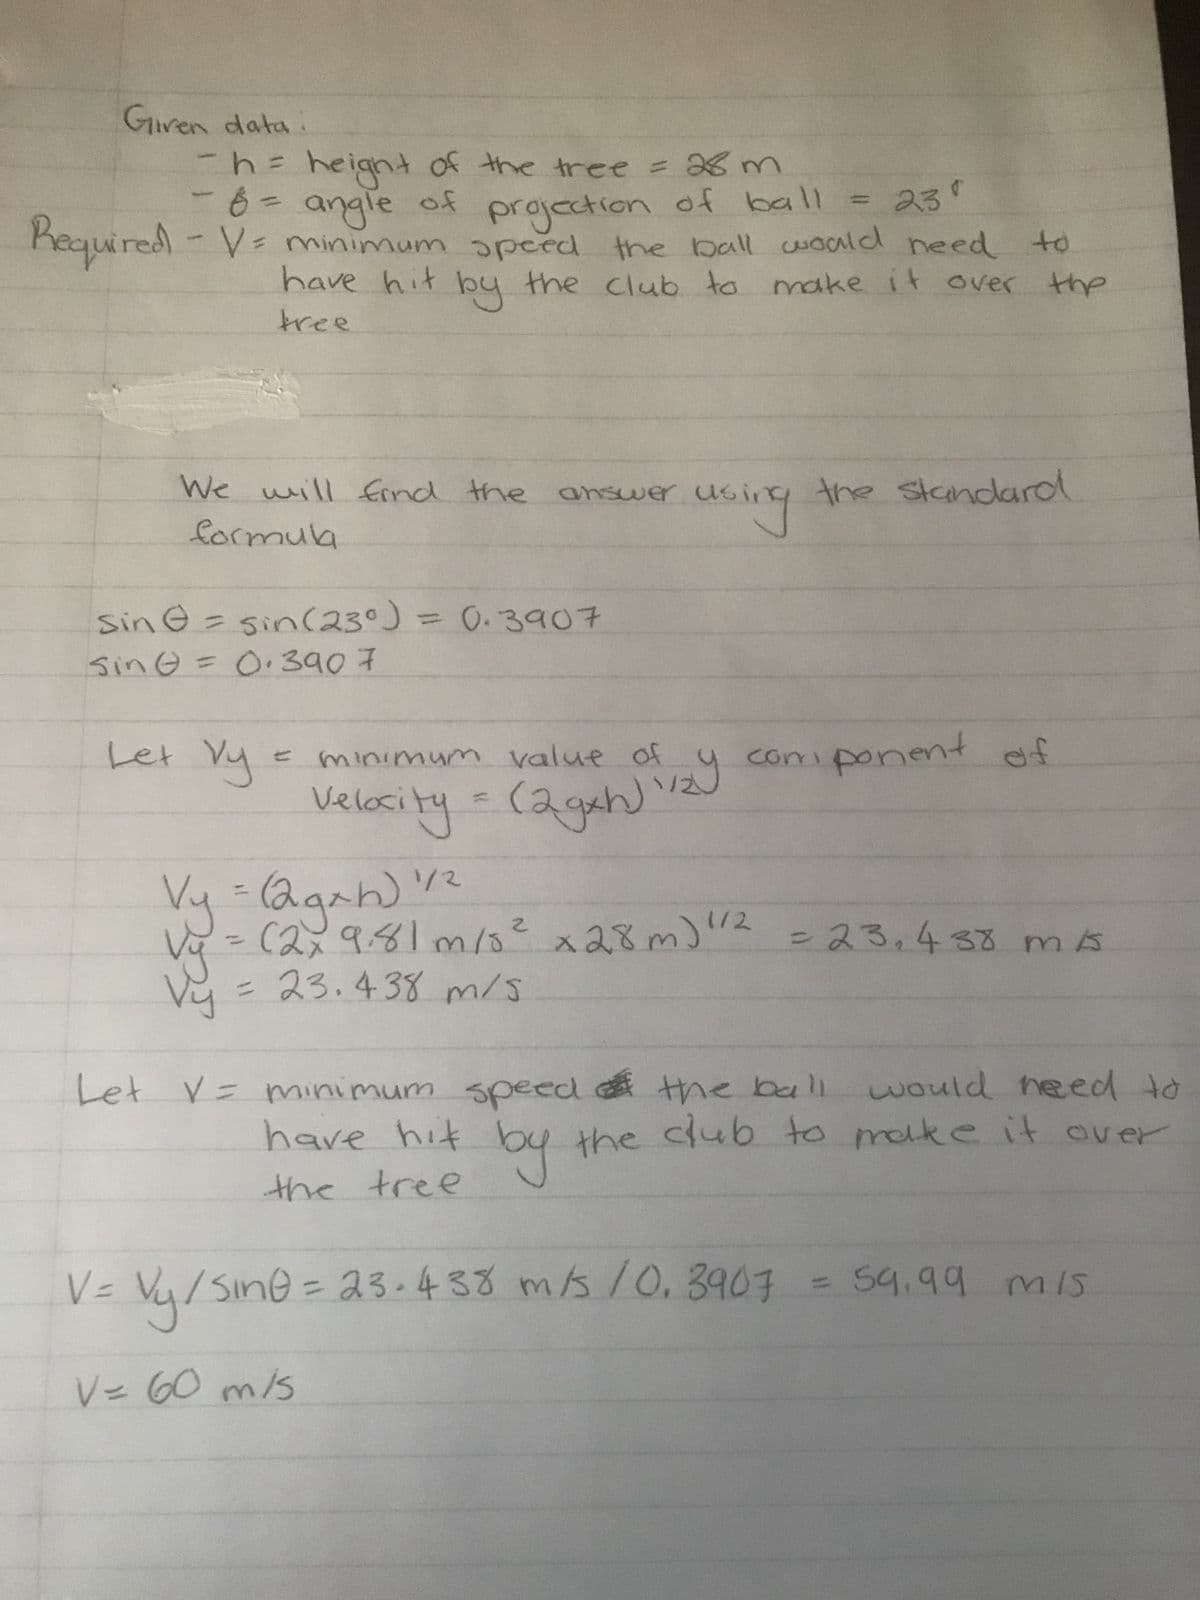 Given data:
- h = height of the tree = 28 m
- θ = angle of projection of ball = 23°
Required - V = minimum speed the ball would need to
have hit by the club to make it over the
tree
We will find the answer using the standard
formula
sin θ = sin(23°) = 0.3907
sin θ = 0.3907
Let Vy = minimum value of y component of
Velocity = (2g×h)^1/2
Vy = (2g×h)^1/2
Vy = (2× 9.81 m/s² × 28 m)^1/2 = 23.438 m/s
Vy = 23.438 m/s
Let V = minimum speed the ball would need to
have hit by the club to make it over
the tree
V = Vy / sin θ = 23.438 m/s / 0.3907 = 59.99 m/s
V = 60 m/s